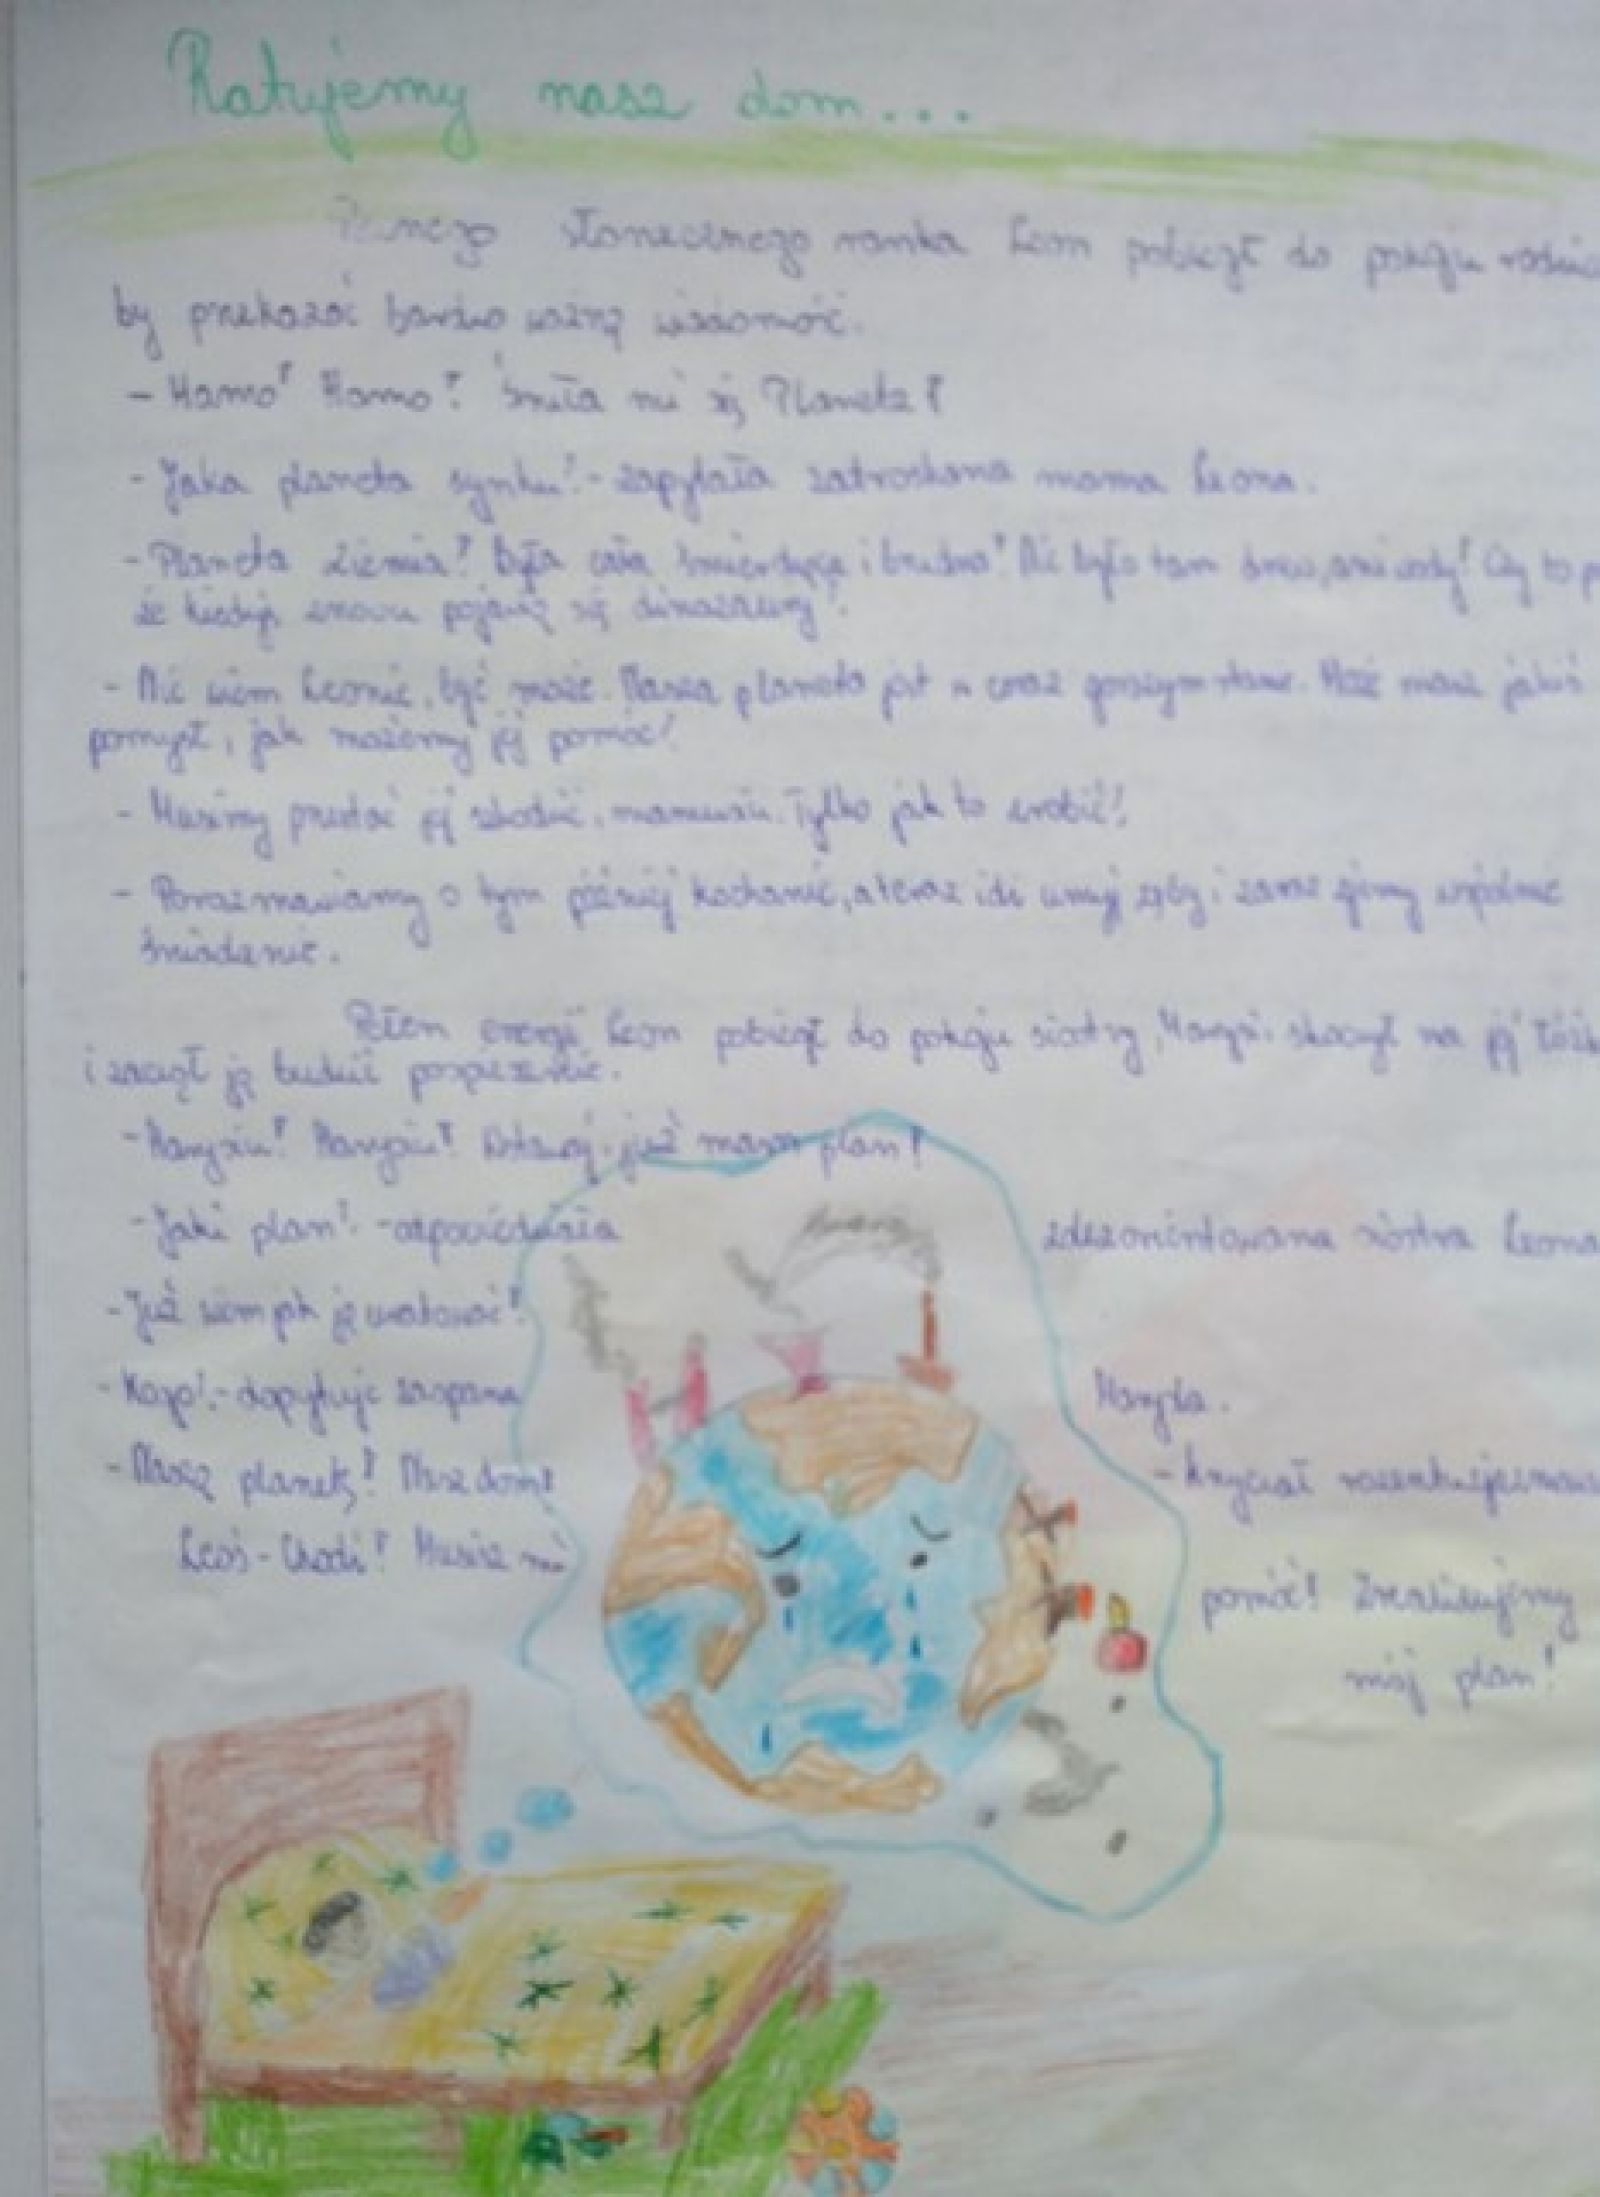 Ratujemy nasz dom...
Pewnego słonecznego ranka Leon pobiegł do pokoju
by przekazać bardzo ważną wiadomość.
- Mamo! Mamo! Śniła mi się Planeta!
- Jaka planeta synku? - zapytała zatroskana mama Leona.
- Planeta Ziemia! Była cała śmierdząca i brudna! Nie było tam drzew, ani wody! Czy to
że kiedyś znowu pojawią się dinozaury?
- Nie wiem Leonie, być może. Nasza planeta jest w coraz gorszym stanie. Może masz jakiś
pomysł, jak możemy jej pomóc?
- Musimy przestać jej szkodzić, mamusiu. Tylko jak to zrobić?
- Porozmawiamy o tym później kochanie, a teraz idź umyj zęby i zaraz zjemy wspólnie
śniadanie.
Pełen energii Leon pobiegł do pokoju siostry, Marysi. skoczył na jej
i zaczął ją budzić pospiesznie.
- Marysiu! Marysiu! Wstawaj, już mam plan!
- Jaki plan? - odpowiedziała zdezorientowana siostra Leona
- Już wiem jak ją uratować!
- Kogo? - dopytuje zaspana Marysia.
- Naszą planetę! Nasz dom! - krzyczał
Leoś - Chodź! Musisz mi pomóc! Zrealizujemy
mój plan!